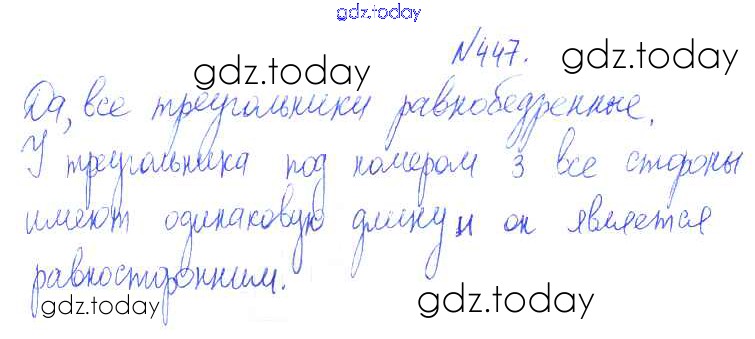 gdz.today
№447.
gdz.today gdz.today
Да, все треугольники равнобедренные.
У треугольника под номером 3 все стороны
имеют одинаковую длину и он является
равносторонним.
gdz.today gdz.today